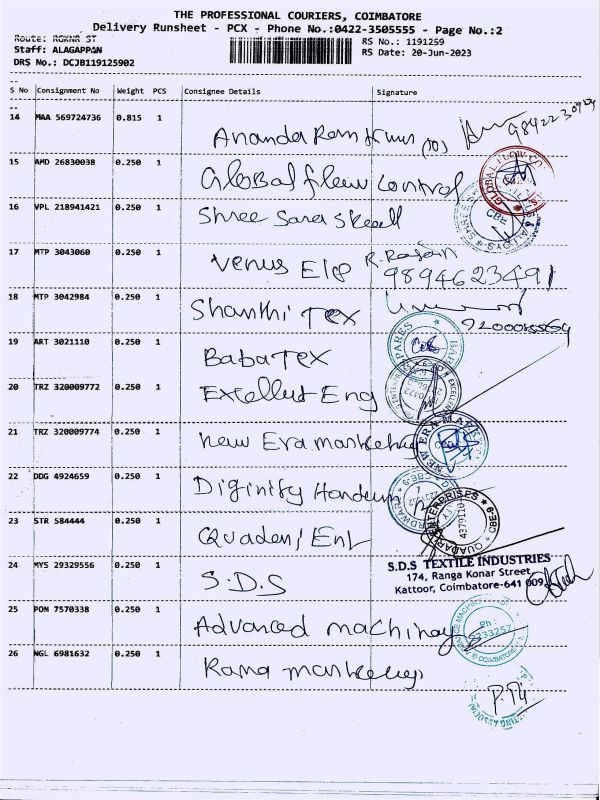 THE PROFESSIONAL COURIERS, COIMBATORE
Delivery Runsheet - PCX - Phone No.:0422-3505555 - Page No.:2
Route: RGKNR ST
RS No.: 1191259
Staff: ALAGAPPAN
RS Date: 20-Jun-2023
DRS No.: DCJB119125902
S No Consignment No Weight PCS Consignee Details Signature
14 MAA 569724736 0.815 1
Ananda Ram
15 AMD 26830038 0.250 1
Global flow control
16 VPL 218941421 0.250 1
Shree Sara
17 MTP 3043060 0.250 1
Venus Ele R. Rajan
9894623491
18 MTP 3042984 0.250 1
Shanthi Tex
19 ART 3021110 0.250 1
Baba Tex
20 TRZ 320009772 0.250 1
Excellent Eng
21 TRZ 320009774 0.250 1
New Era marketing
NEW ERA MARKETING
22 DDG 4924659 0.250 1
Diginity
23 STR 584444 0.250 1
ENTERPRISES CBE-9
4379110
24 MYS 29329556 0.250 1
S.D.S
S.D.S TEXTILE INDUSTRIES
174, Ranga Konar Street,
Kattoor, Coimbatore-641 009.
25 PON 7570338 0.250 1
Advanced machinay
Ph :
2233252
26 NGL 6981632 0.250 1
Rama